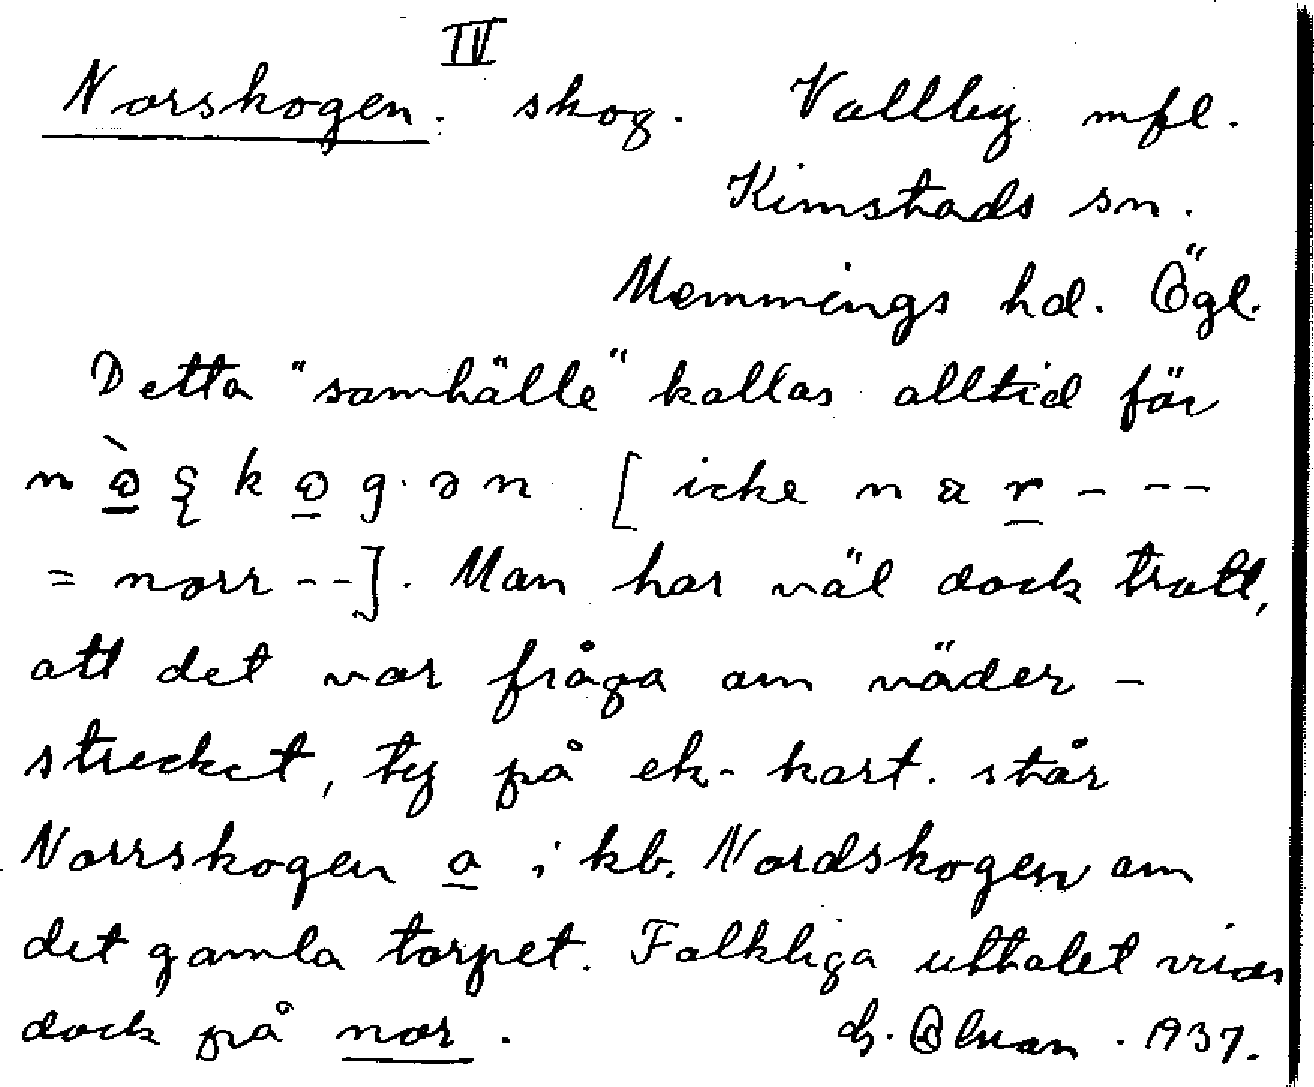 IV
Norskogen. skog. Vallby mfl.
Kimstads sn.
Memmings hd. Ögl.
Detta "samhälle" kallas alltid för
[icke n a r - --
= norr --]. Man har väl dock trott,
att det var fråga om väder-
strecket, ty på ek-kart. står
Norrskogen o i kb. Nordskogen om
det gamla torpet. Folkliga uttalet visar
dock på nor. 1937.